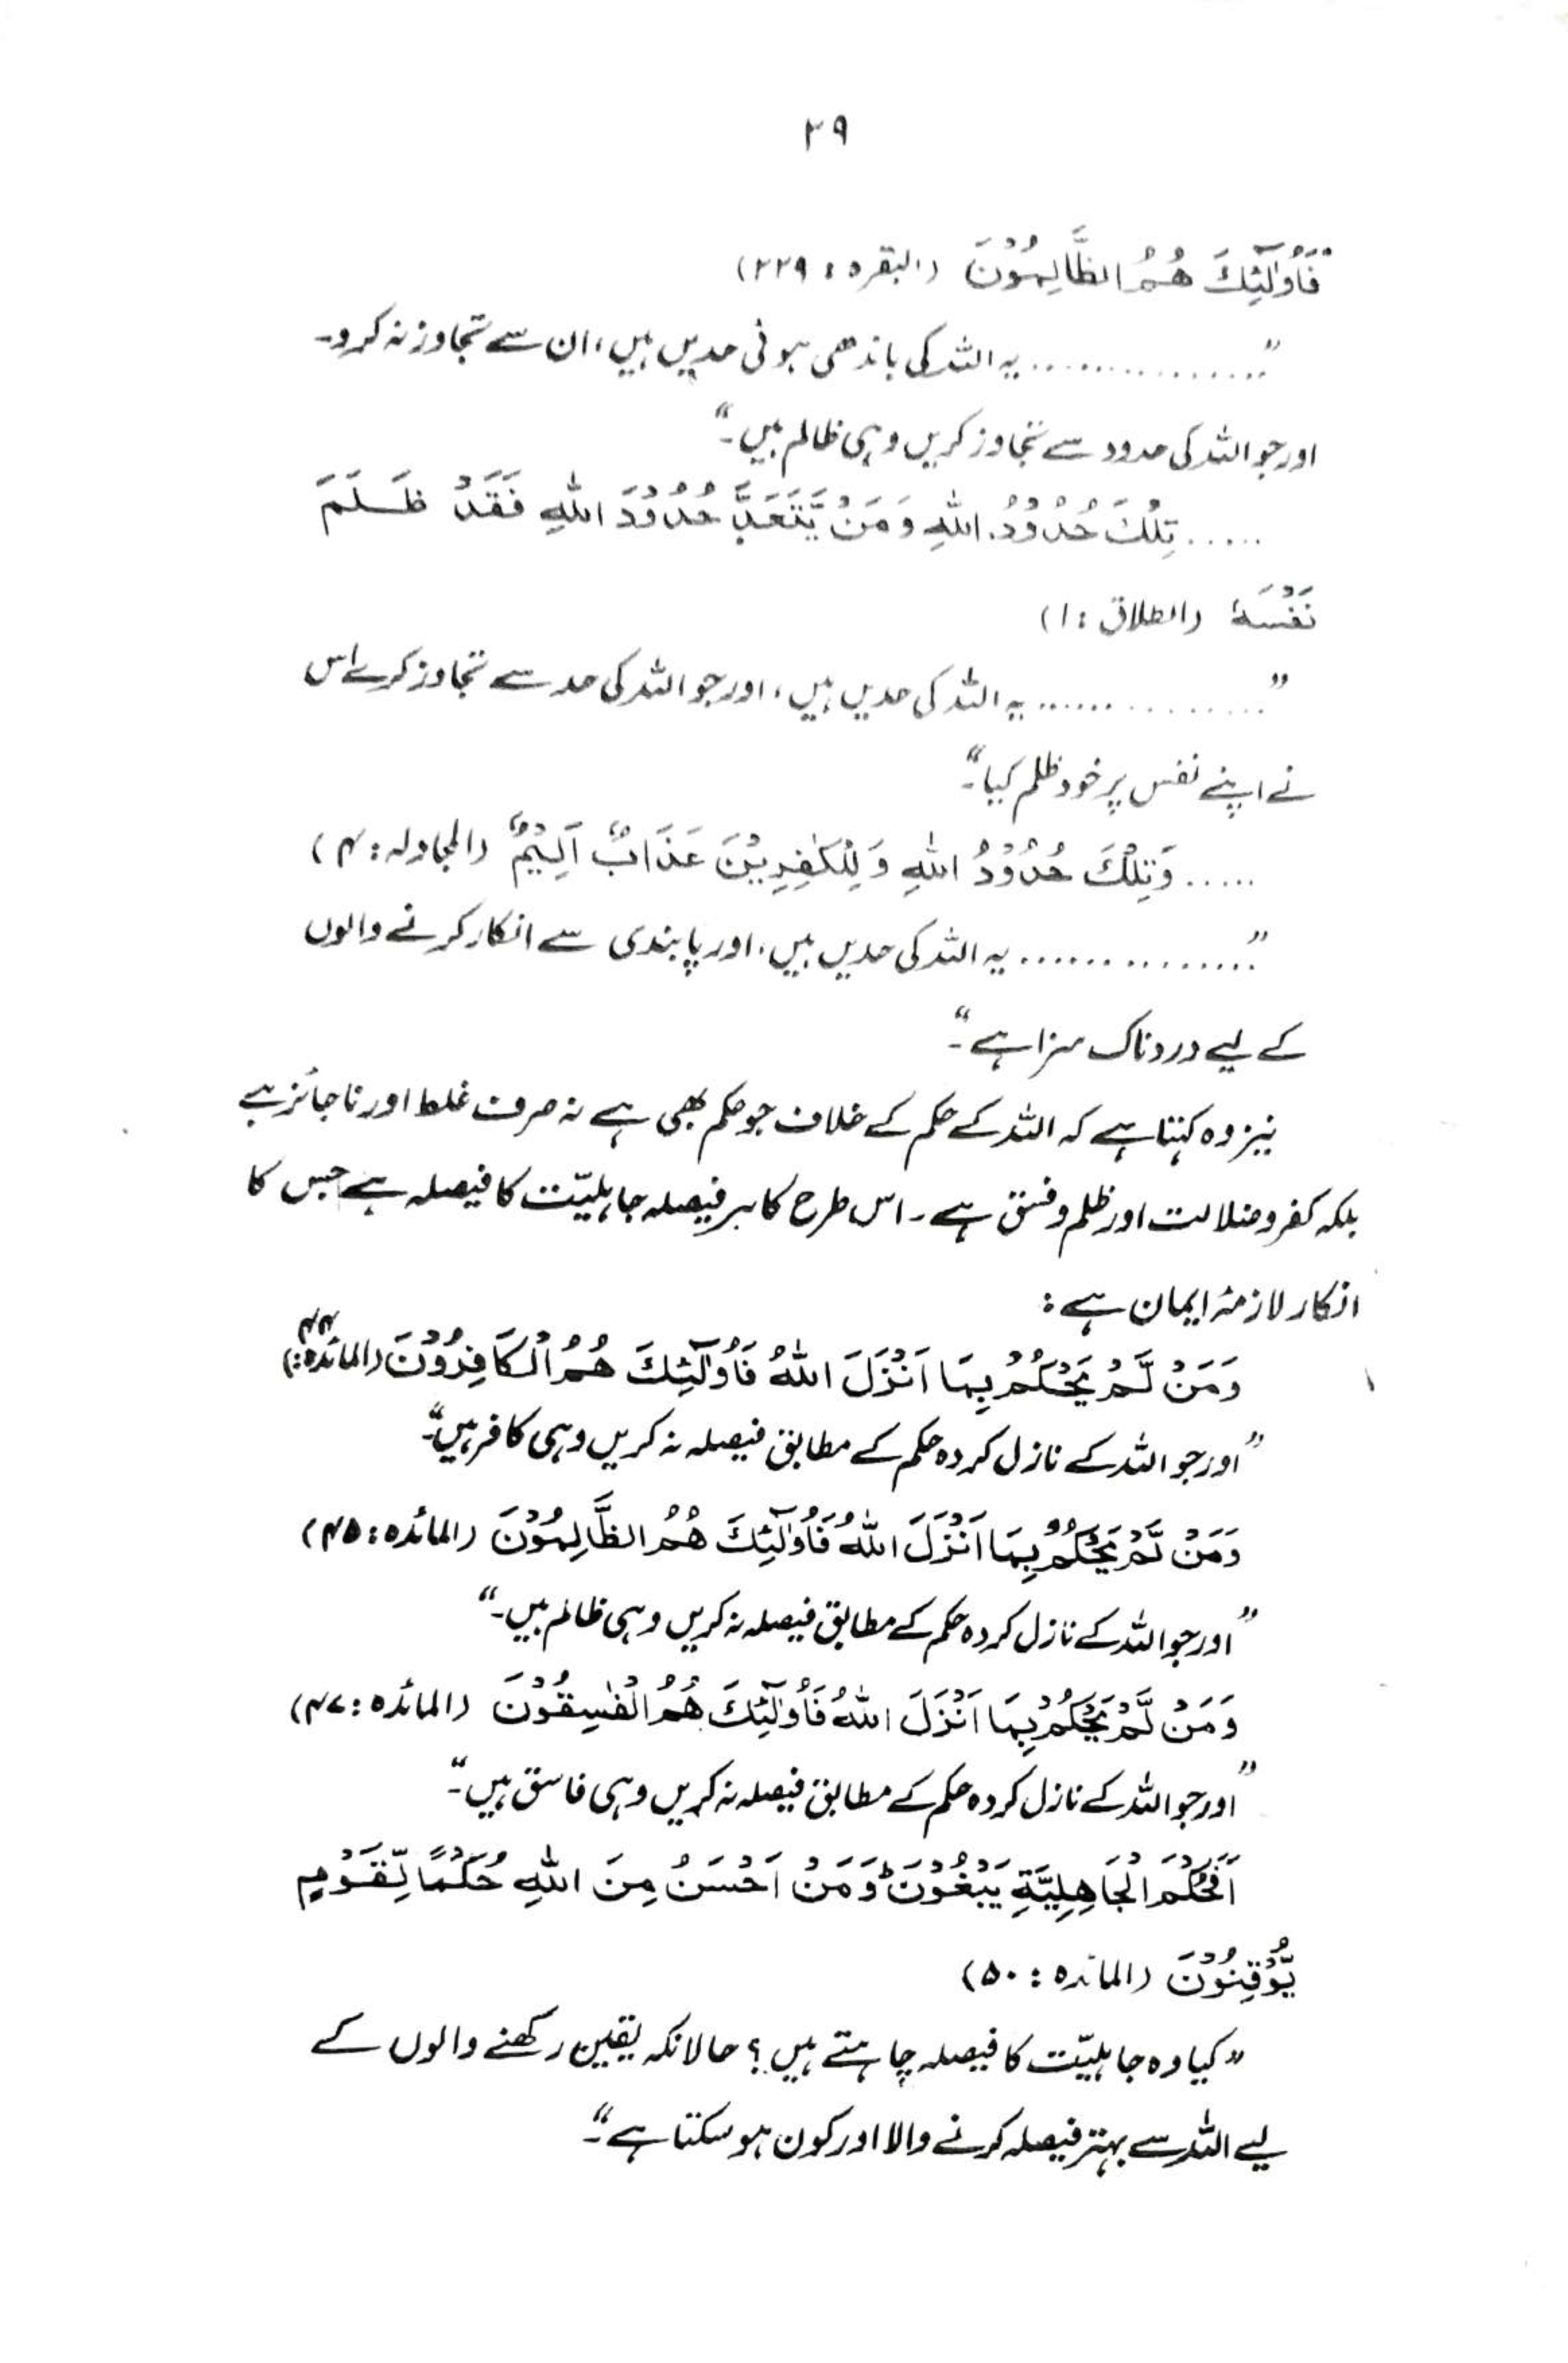 ۲۹
فَاُولٰٓئِكَ هُمُ الظَّالِمُوْنَ (البقرہ: ۲۲۹)
"............... یہ اللہ کی باندھی ہوئی حدیں ہیں، ان سے تجاوز نہ کرو۔
اور جو اللہ کی حدود سے تجاوز کریں وہی ظالم ہیں۔"
..... تِلْكَ حُدُوْدُ اللهِ وَمَنْ يَّتَعَدَّ حُدُوْدَ اللهِ فَقَدْ ظَلَمَ
نَفْسَهٗ (الطلاق: ۱)
"............... یہ اللہ کی حدیں ہیں، اور جو اللہ کی حد سے تجاوز کرے اس
نے اپنے نفس پر خود ظلم کیا۔"
..... وَتِلْكَ حُدُوْدُ اللهِ وَلِلْكٰفِرِيْنَ عَذَابٌ اَلِيْمٌ (المجادلہ: ۴)
"............... یہ اللہ کی حدیں ہیں، اور پابندی سے انکار کرنے والوں
کے لیے دردناک سزا ہے۔"
نیز وہ کہتا ہے کہ اللہ کے حکم کے خلاف جو حکم بھی ہے نہ صرف غلط اور ناجائز ہے
بلکہ کفر و ضلالت اور ظلم و فسق ہے۔ اس طرح کا ہر فیصلہ جاہلیّت کا فیصلہ ہے جس کا
انکار لازمۂ ایمان ہے:
وَمَنْ لَّمْ يَحْكُمْ بِمَا اَنْزَلَ اللهُ فَاُولٰٓئِكَ هُمُ الْكَافِرُوْنَ (المائدہ: ۴۴)
"اور جو اللہ کے نازل کردہ حکم کے مطابق فیصلہ نہ کریں وہی کافر ہیں۔"
وَمَنْ لَّمْ يَحْكُمْ بِمَا اَنْزَلَ اللهُ فَاُولٰٓئِكَ هُمُ الظَّالِمُوْنَ (المائدہ: ۴۵)
"اور جو اللہ کے نازل کردہ حکم کے مطابق فیصلہ نہ کریں وہی ظالم ہیں۔"
وَمَنْ لَّمْ يَحْكُمْ بِمَا اَنْزَلَ اللهُ فَاُولٰٓئِكَ هُمُ الْفٰسِقُوْنَ (المائدہ: ۴۷)
"اور جو اللہ کے نازل کردہ حکم کے مطابق فیصلہ نہ کریں وہی فاسق ہیں۔"
اَفَحُكْمَ الْجَاهِلِيَّةِ يَبْغُوْنَ ؕ وَمَنْ اَحْسَنُ مِنَ اللهِ حُكْمًا لِّقَوْمٍ
يُّوْقِنُوْنَ (المائدہ: ۵۰)
"کیا وہ جاہلیّت کا فیصلہ چاہتے ہیں؟ حالانکہ یقین رکھنے والوں کے
لیے اللہ سے بہتر فیصلہ کرنے والا اور کون ہو سکتا ہے۔"